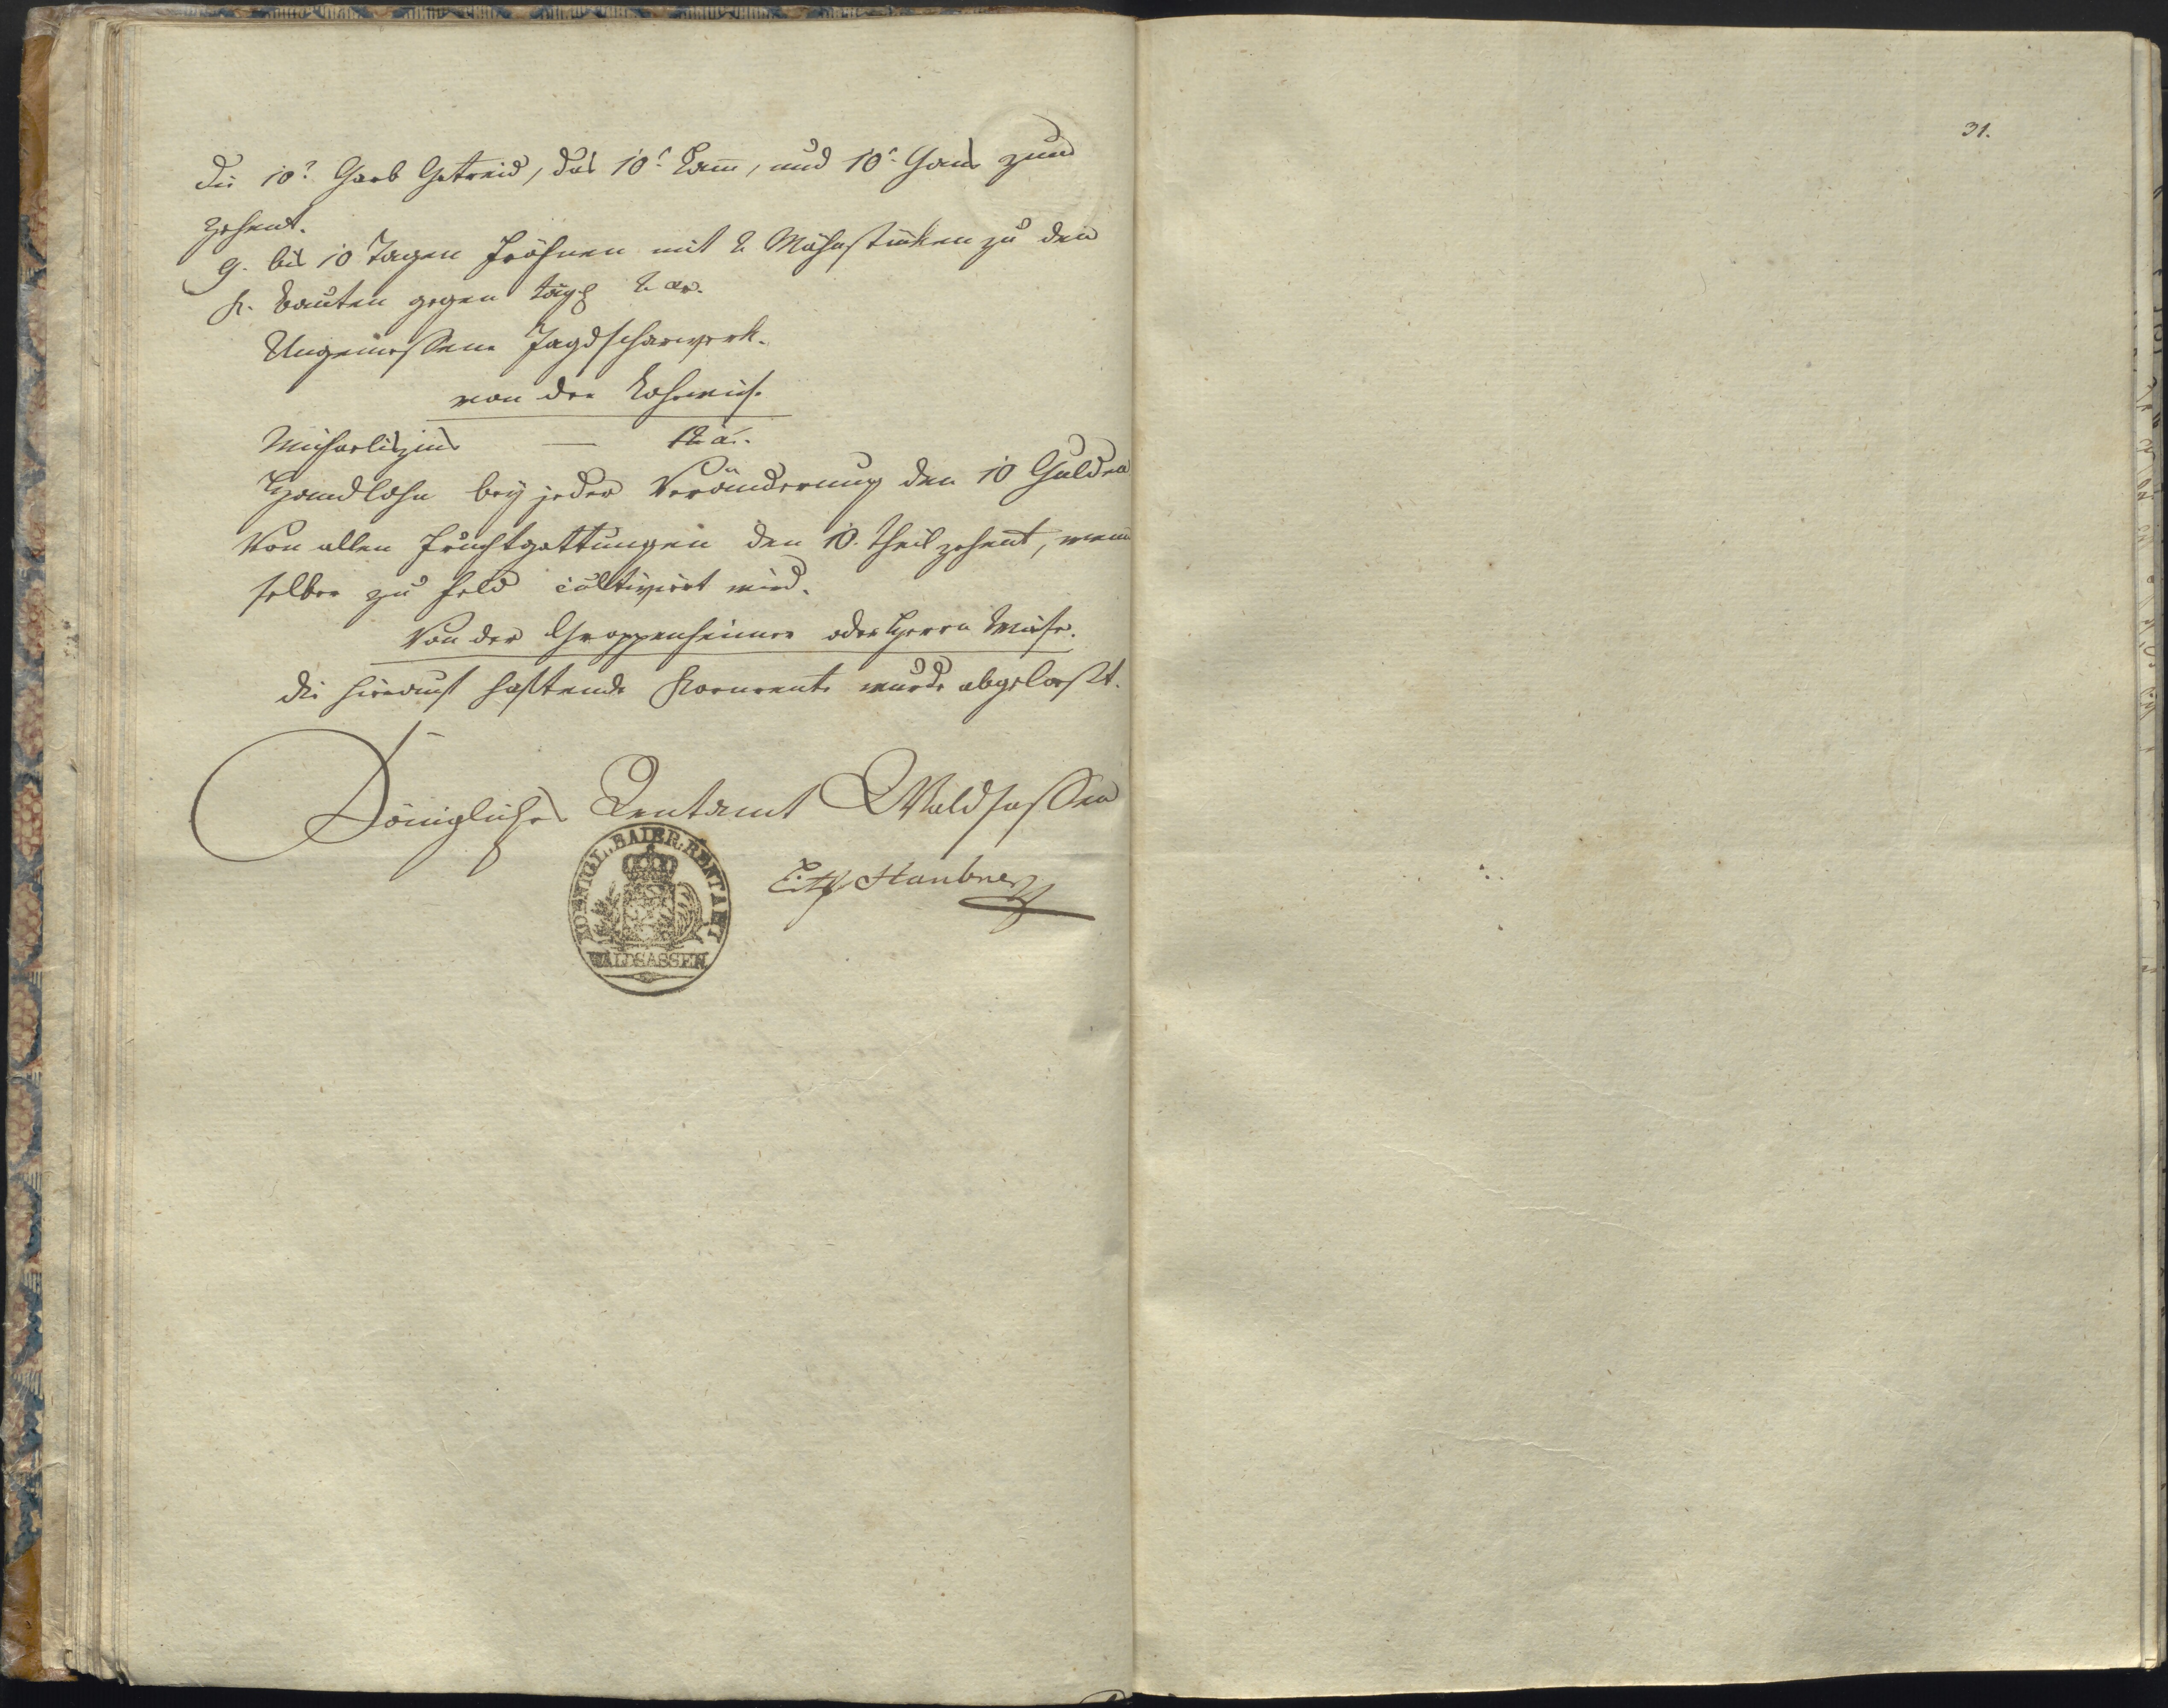 Die 10.t Garb Getreid, das 10.t Lam̅, und 10.t Gans zum
Zehent.
9. bis 10 Tagen Fröhnen mit 2 Mähnstücken zu den
h. Bauten gegen tägl 2 xr.
Ungemessene Jagdscharwerk.
von der Lohewiese
Michaeliszins — 12 xr.
Handlohn bey jeder Veränderung den 10 Gulden
Von allen Fruchtgattungen den 10. Theil Zehent, wenn
selbe zu Feld cultivirt wird.
Von der Groppenheimer oder Herrn Wiese.
die hierauf haftende Kornrente wurde abgelösst.
Königliches Rentamt Waldsassen
KOENIGL. BAIER. RENTAMT
WALDSASSEN
31.